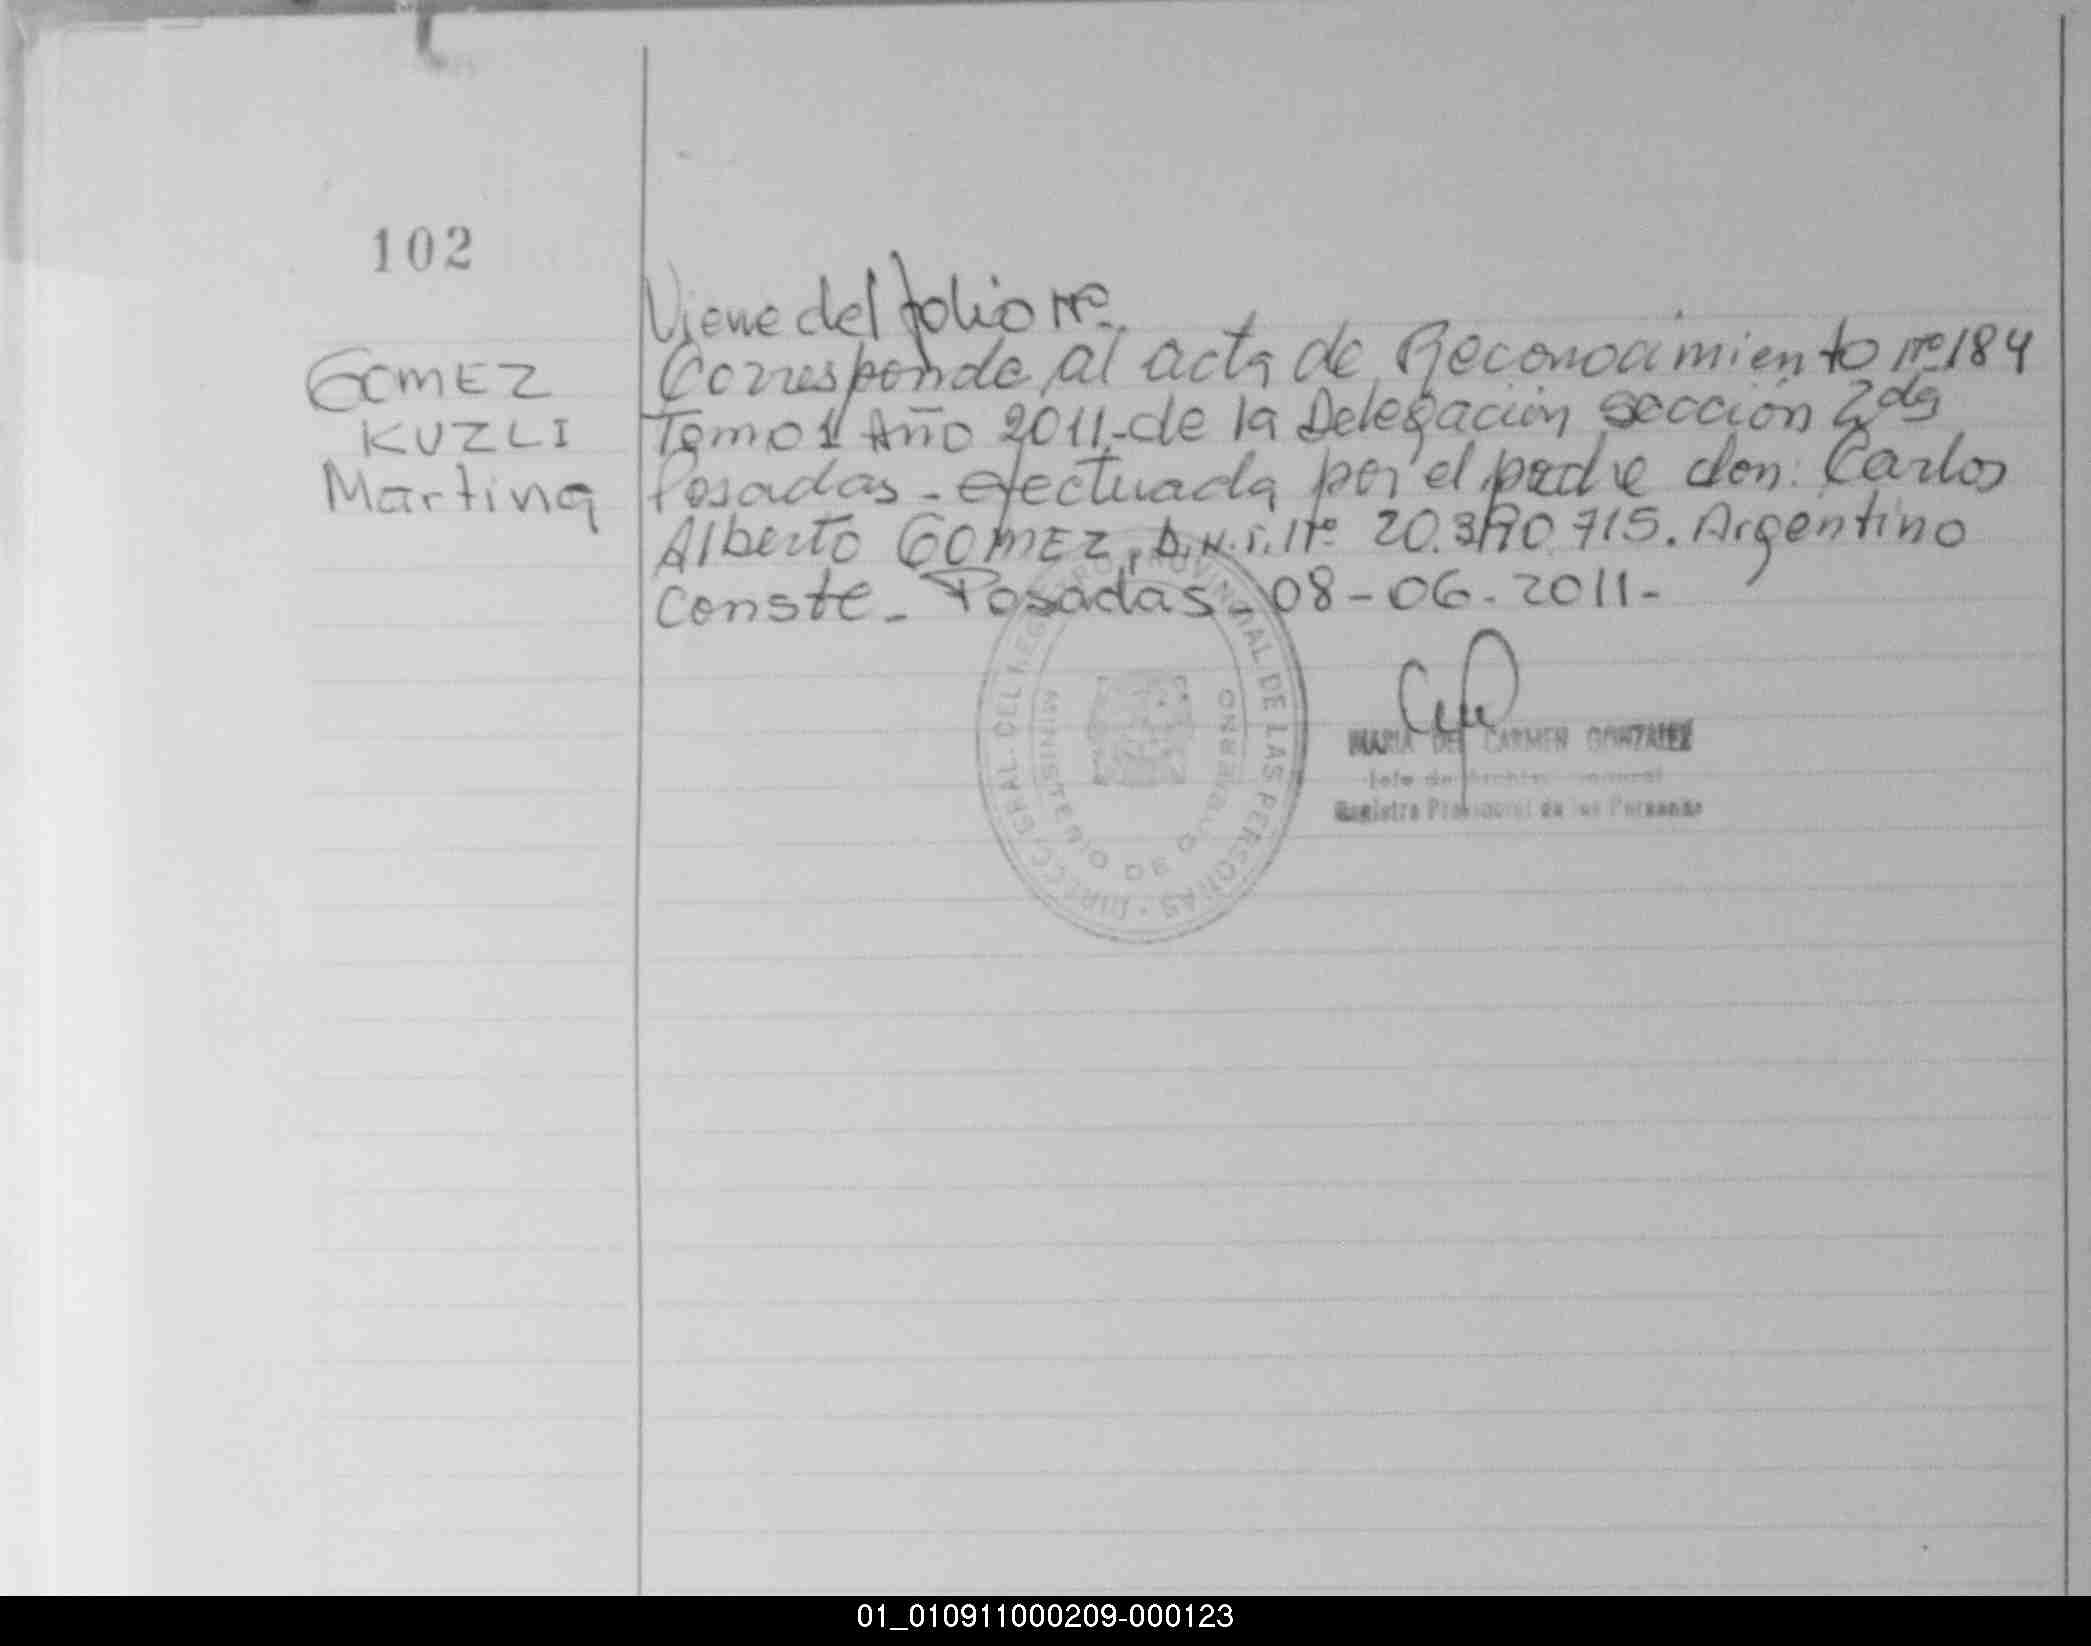 102
Viene del folio Nº.
GOMEZ
KUZLI
Martina
Corresponde al acta de Reconocimiento Nº 184
Tomo 1 Año 2011-de la Delegación sección 2da
Posadas - efectuada por el padre don: Carlos
Alberto GOMEZ, D.N.I. Nº 20.390.715. Argentino
Conste - Posadas - 08-06-2011-
DIRECC. GRAL. DEL REGISTRO PROVINCIAL DE LAS PERSONAS
MINISTERIO DE GOBIERNO
MARIA DEL CARMEN GONZALEZ
Jefe de Archivo General
Registro Provincial de las Personas
01_010911000209-000123